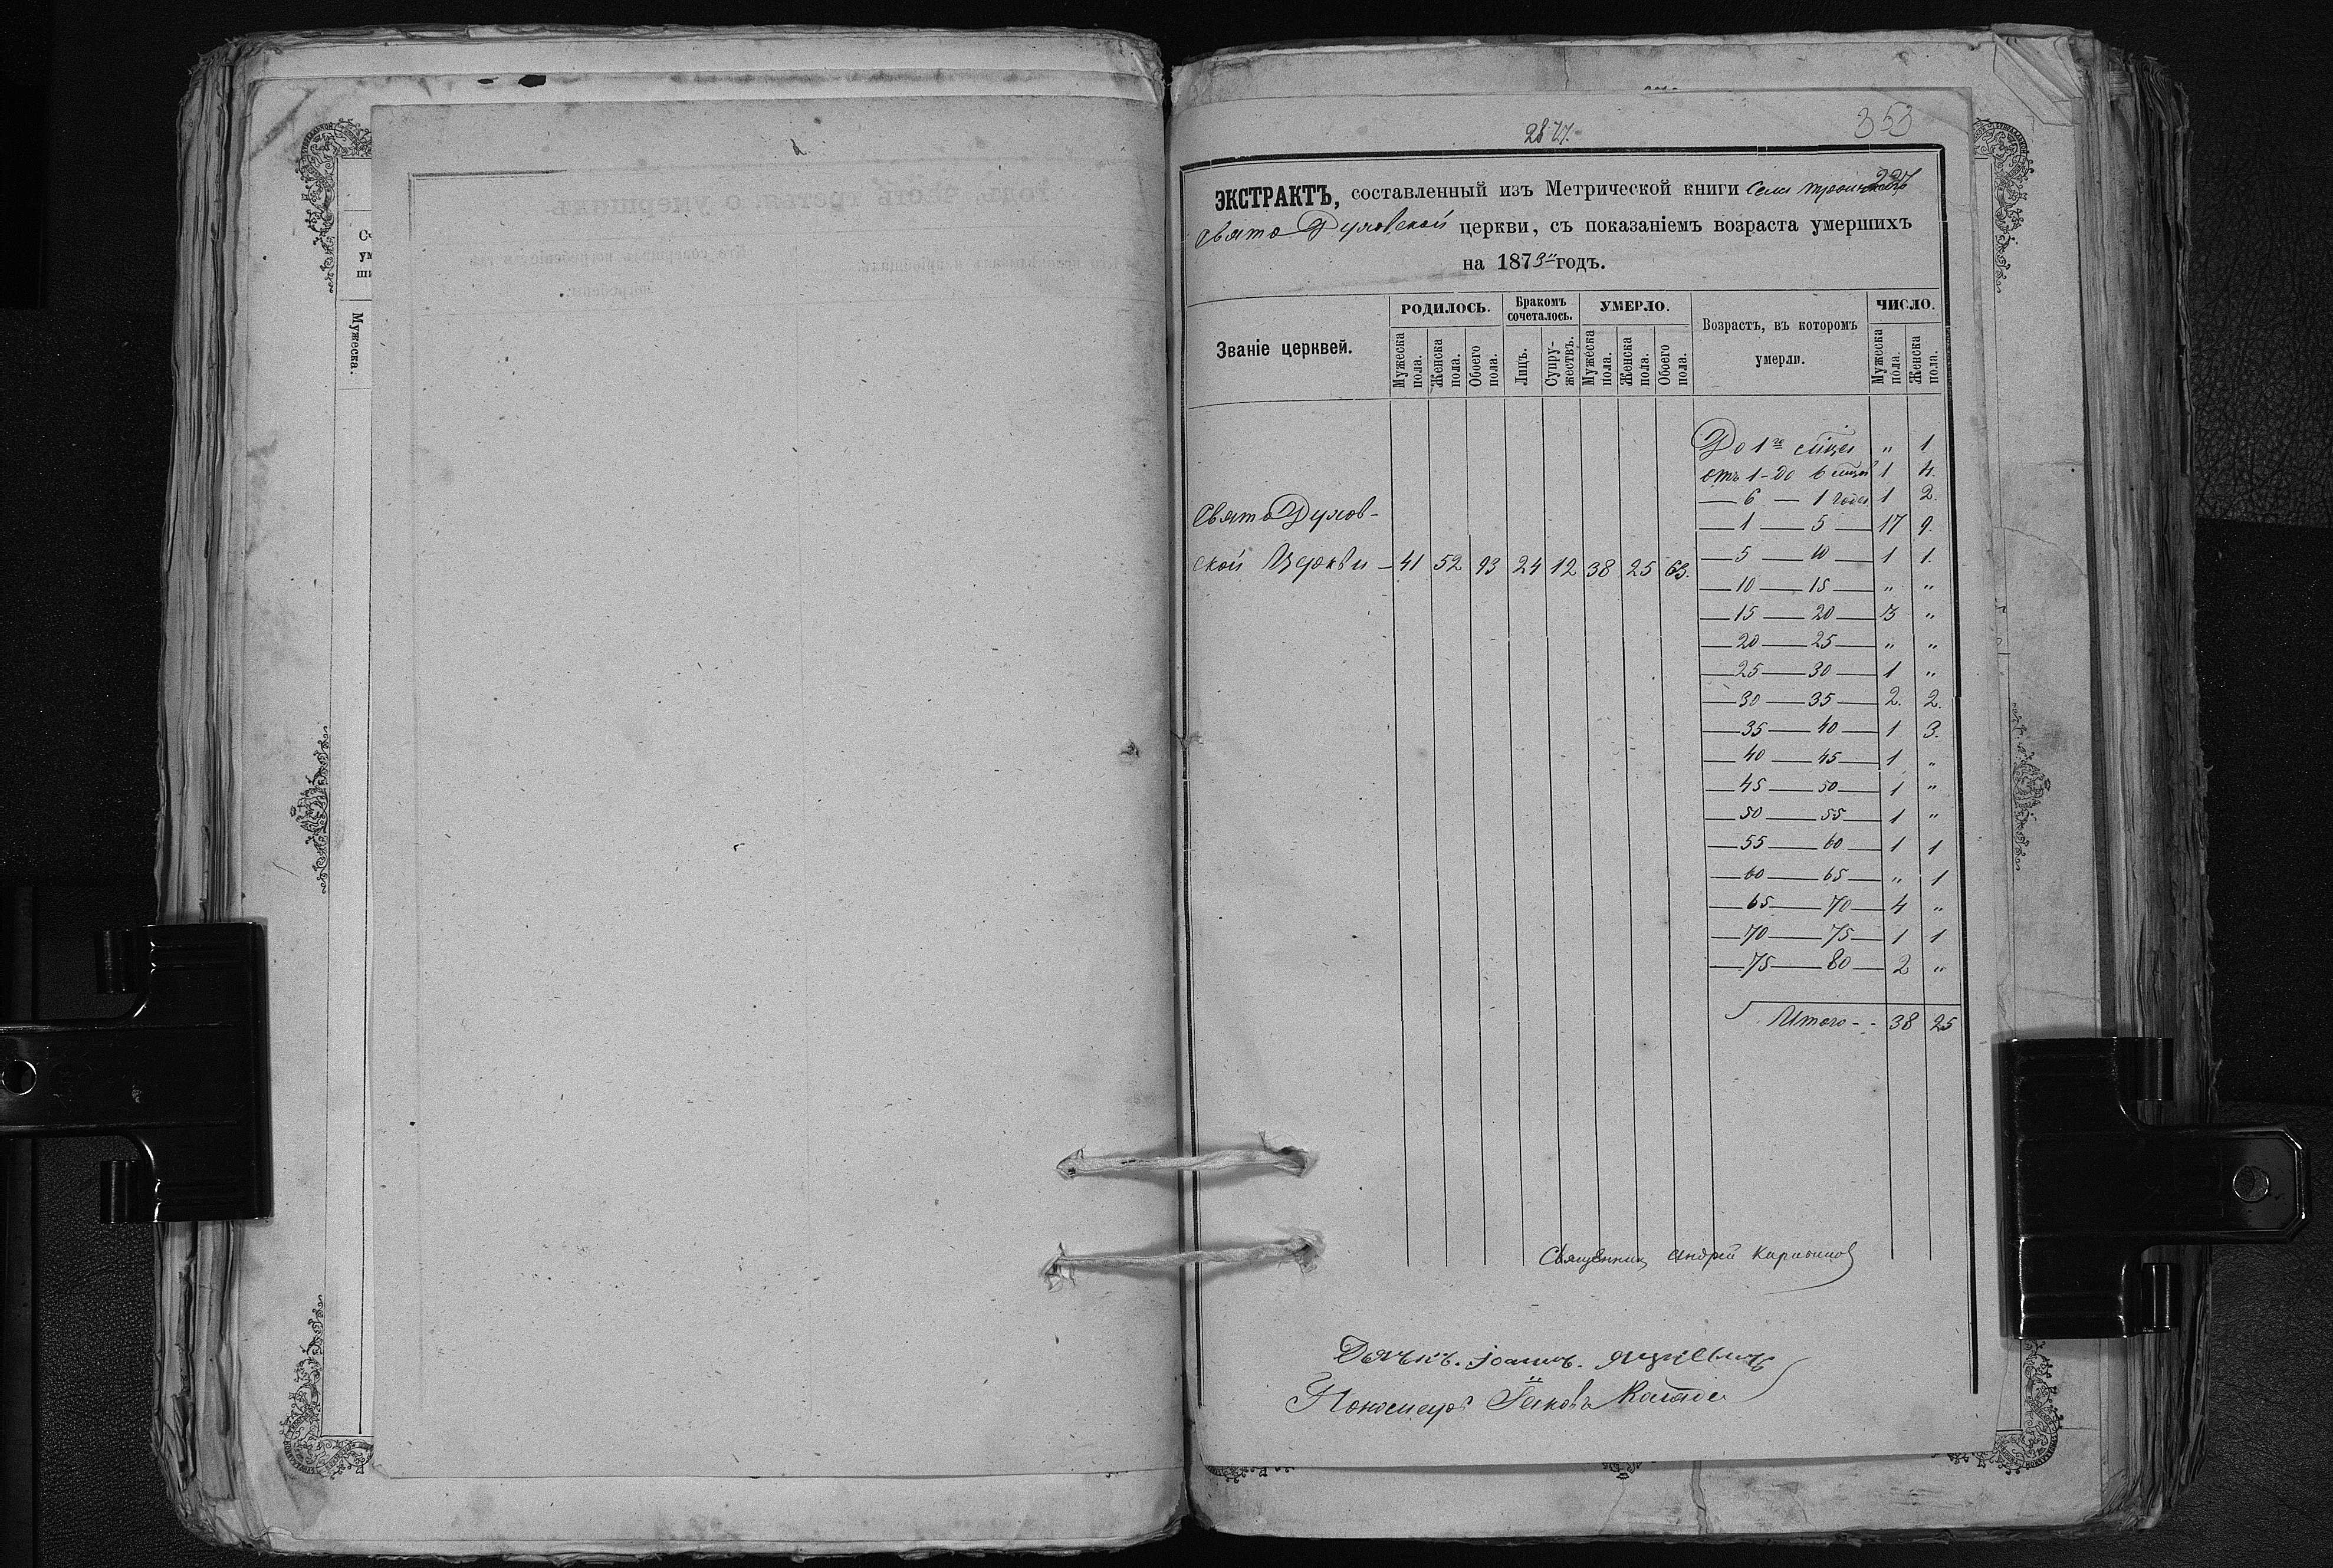 353
227
ЭКСТРАКТЪ, составленный изъ Метрической книги Села
Свято Духовской церкви, съ показаніемъ возраста умершихъ
на 1873 годъ.
Званіе церквей.
РОДИЛОСЬ.
Бракомъ сочеталось.
УМЕРЛО.
Возрастъ, въ которомъ умерли.
ЧИСЛО.
Мужеска пола.
Женска пола.
Обоего пола.
Лицъ.
Супружествъ.
Мужеска пола.
Женска пола.
Обоего пола.
Мужеска пола.
Женска пола.
До 1го мсца „ 1
отъ 1 - до 6 мцов 1 4.
— 6 — 1 года 1 2.
— 1 — 5 — 17 9.
— 5 — 10 — 1 1.
— 10 — 15 — „ „
— 15 — 20 — 3 „
— 20 — 25 — „ „
— 25 — 30 — 1 „
— 30 — 35 — 2. 2.
— 35 — 40 — 1 3.
— 40 — 45 — 1 „
— 45 — 50 — 1 „
— 50 — 55 — 1 „
— 55 — 60 — 1 1
— 60 — 65 — „ 1
— 65 — 70 — 4 „
— 70 — 75 — 1 1
— 75 — 80 — 2 „
Итого - - 38 25
Свято Духов-
ской Церкви — 41 52 93 24 12 38 25 63.
Священник Андрей
Дьячкъ. Іоаннъ.
Пономарь Іаковъ
Мужеска.